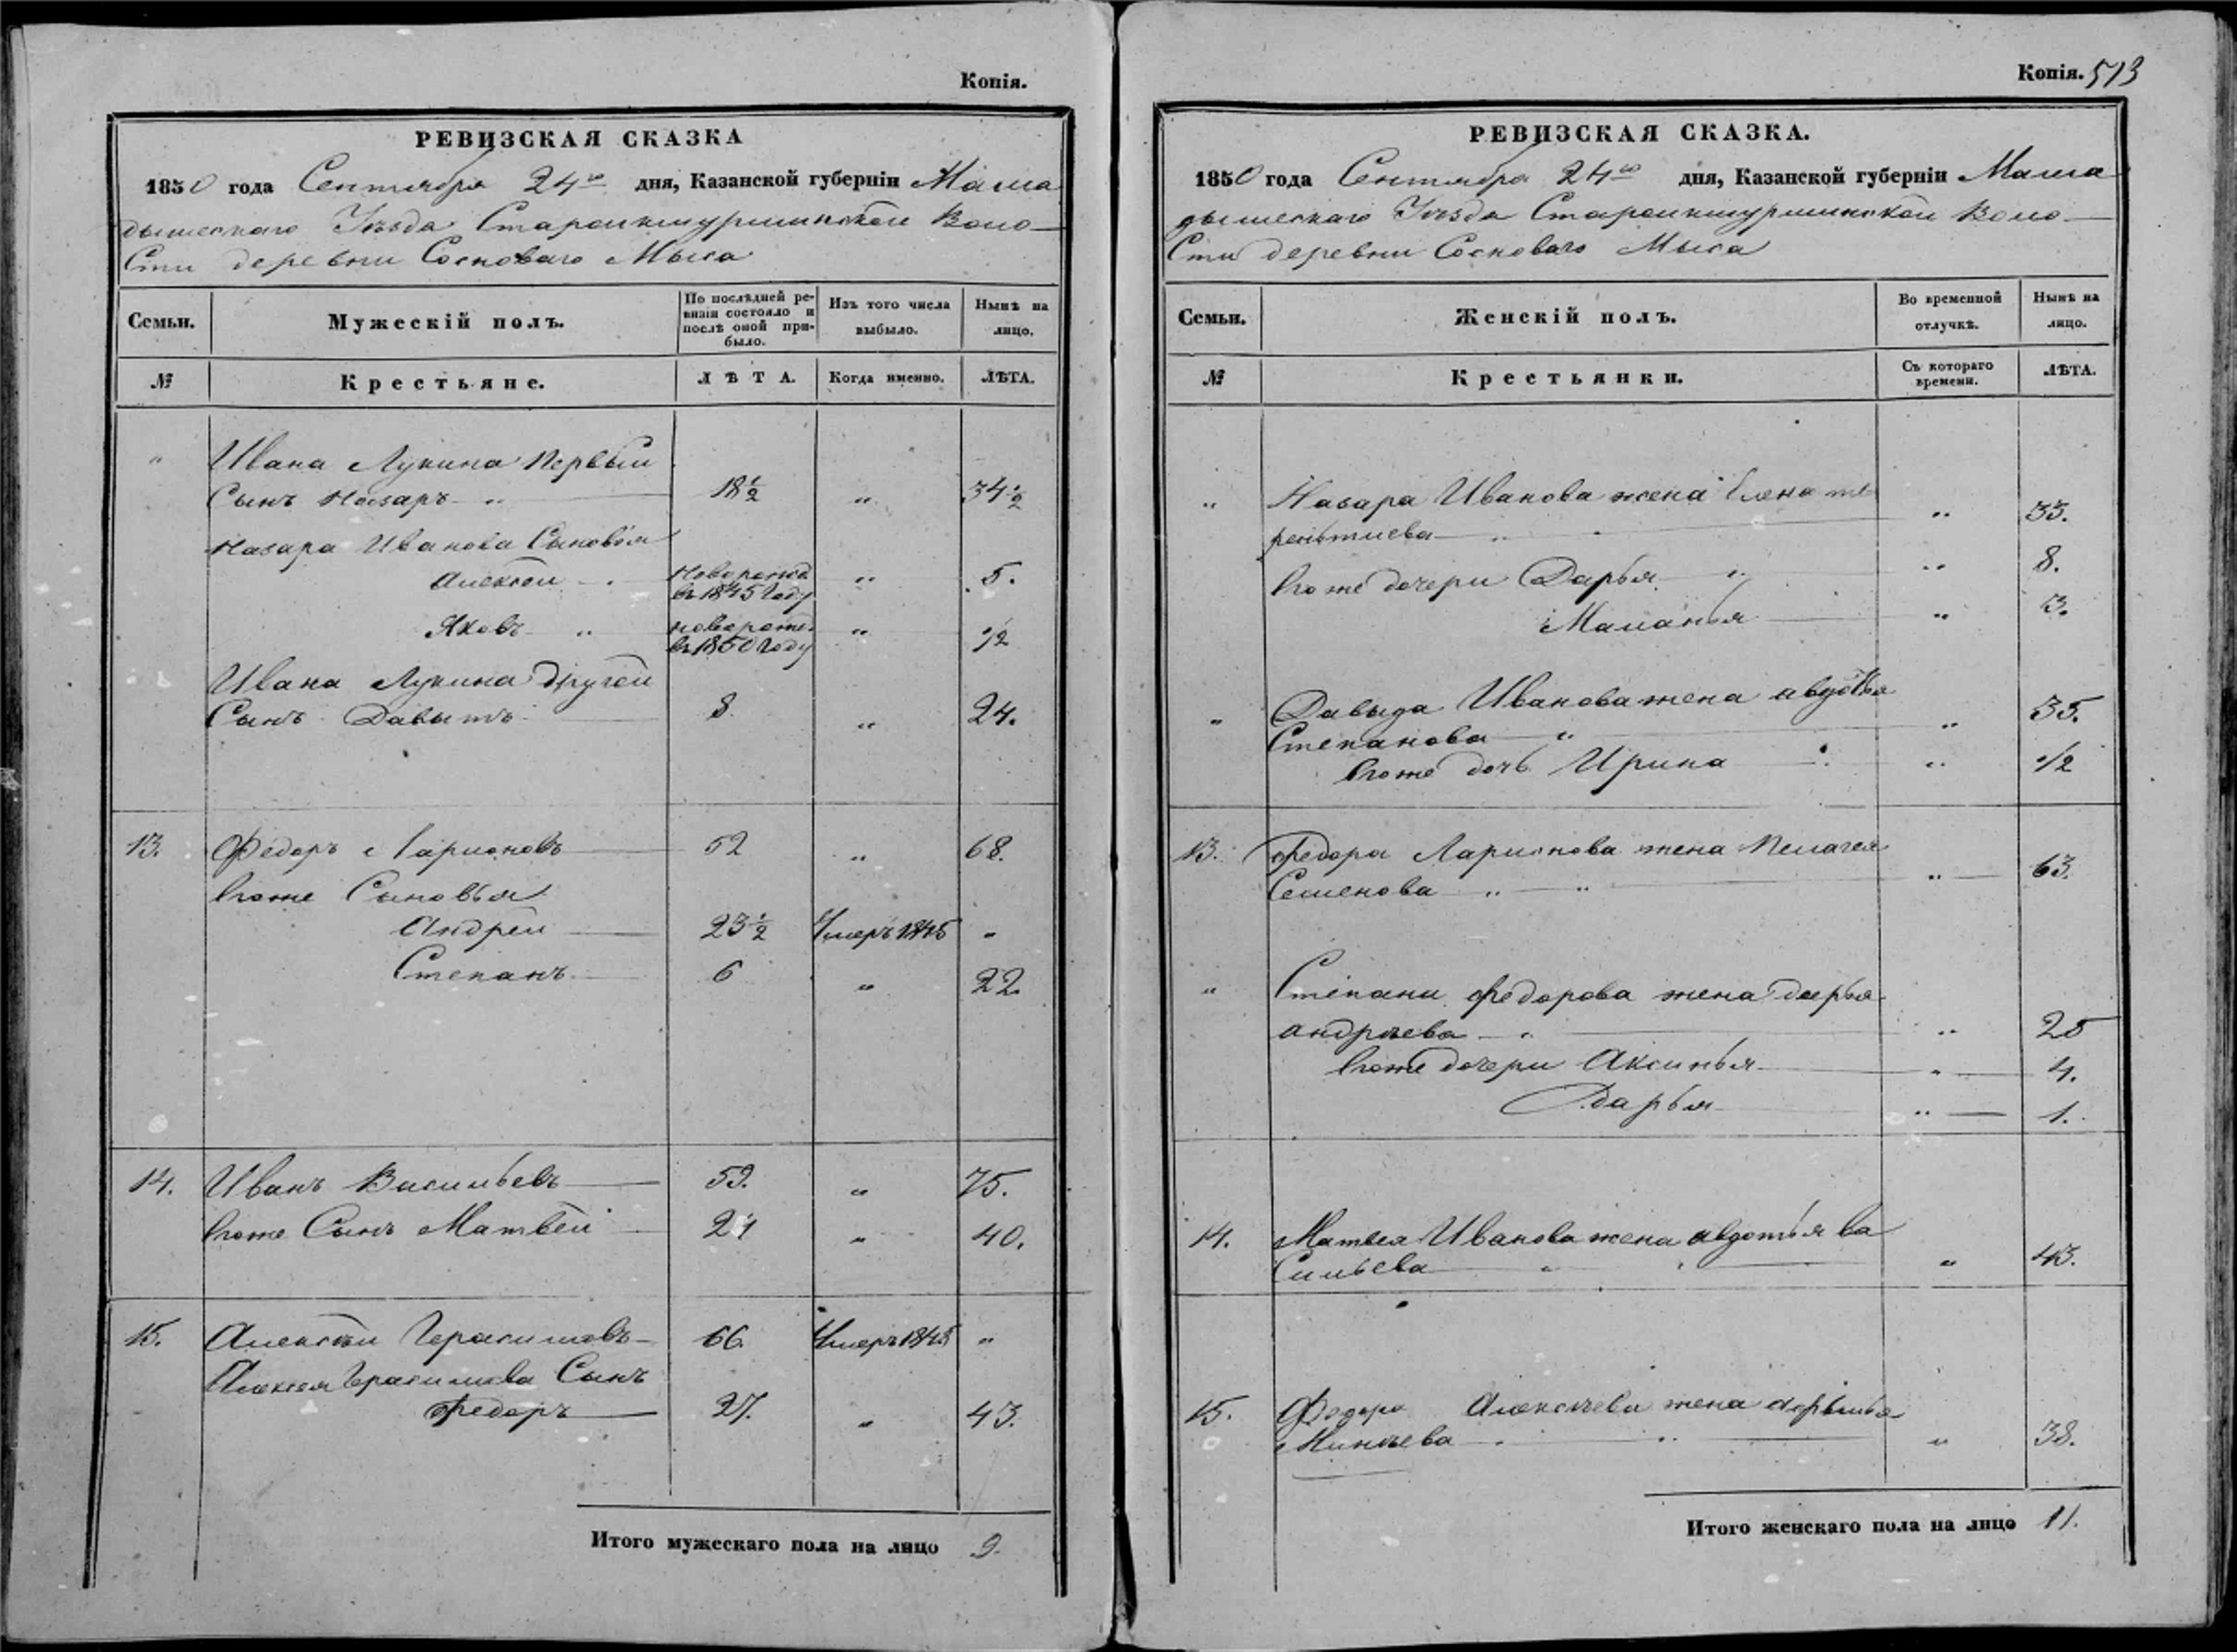 Копія.
РЕВИЗСКАЯ СКАЗКА
1850 года Сентября 24го дня, Казанской губерніи Мама
дышскаго Уѣзда Староикшурминской Воло
сти деревни Сосноваго Мыса
Семьи.
Мужескій полъ.
По послѣдней ре-
визіи состояло и
послѣ оной при-
было.
Изъ того числа
выбыло.
Нынѣ на
лицо.
№
Крестьяне.
ЛѢТА.
Когда именно.
ЛѢТА.
" Ивана Лукина первый
Сынъ Назаръ " 18½ " 34½
Назара Иванова Сыновья
Алексѣй Новорожд. въ 1845 году " 5.
Яковъ " новорожд. въ 1850 году " ½
Ивана Лукина другой
Сынъ Давытъ 8 " 24.
13. Федоръ Ларионовъ 52 " 68.
Его же Сыновья
Андрей 23½ Умеръ 1845 "
Степанъ 6 " 22.
14. Иванъ Васильевъ 59. " 75.
Его же Сынъ Матвей 24 " 40.
15. Алексѣй Герасимовъ 66. Умеръ 1845 "
Алексея Герасимова Сынъ
Федоръ 27. " 43.
Итого мужескаго пола на лицо 9.
Копія. 513
РЕВИЗСКАЯ СКАЗКА.
1850 года Сентября 24го дня, Казанской губерніи Мама
дышскаго Уѣзда Староикшурминской Воло
сти деревни Сосноваго Мыса
Семьи.
Женскій полъ.
Во временной
отлучкѣ.
Нынѣ на
лицо.
№
Крестьянки.
Съ котораго
времени.
ЛѢТА.
" Назара Иванова жена Елена те
рентиева " " 33.
Его же дочери Дарья " " 8.
Маланья " 3.
" Давыда Иванова жена авдотья
Степанова " " 35.
Его же дочь Ирина " ½
13. Федора Ларионова жена Пелагея
Семенова " " " 63.
" Степана Федорова жена дарья
андреева " " 25
Его же дочери Аксинья " 4.
Дарья " 1.
14. Матвея Иванова жена авдотья ва
Сильева " " 43.
15. Федора Алексеева жена
Минеева " " 38.
Итого женскаго пола на лицо 11.